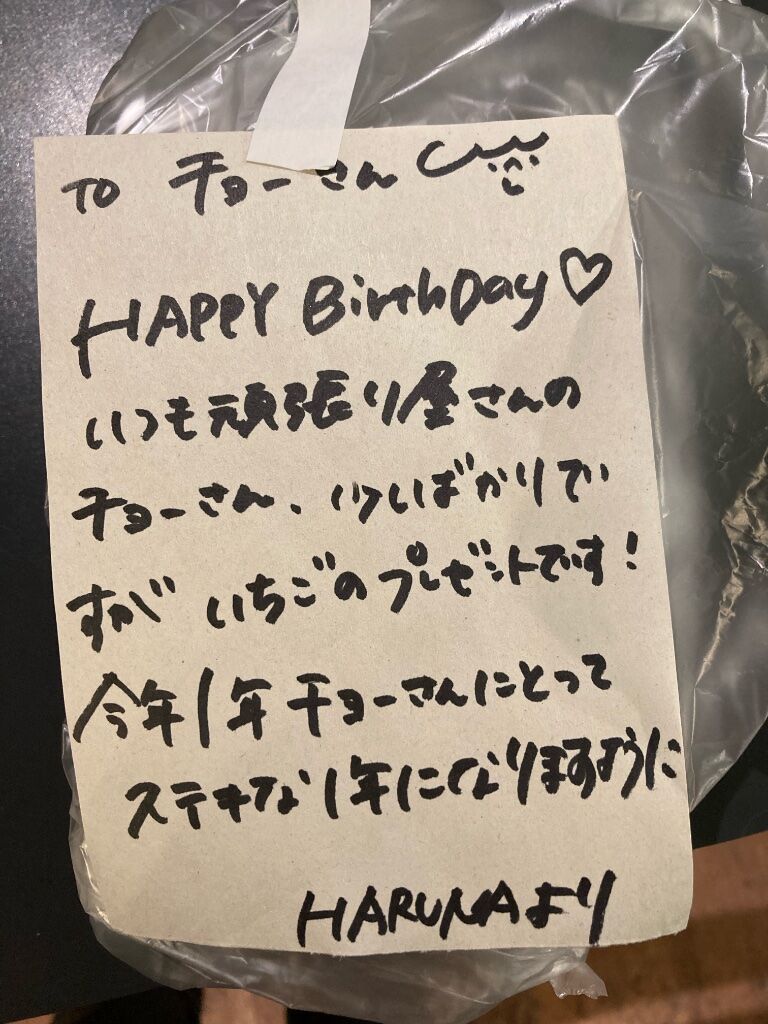 TO チョーさん
HAPPY BirthDay♡
いつも頑張り屋さんの
チョーさん、いつしばかりで
すが いちごのプレゼントです!
今年1年チョーさんにとって
ステキな1年になりますように
HARUNAより